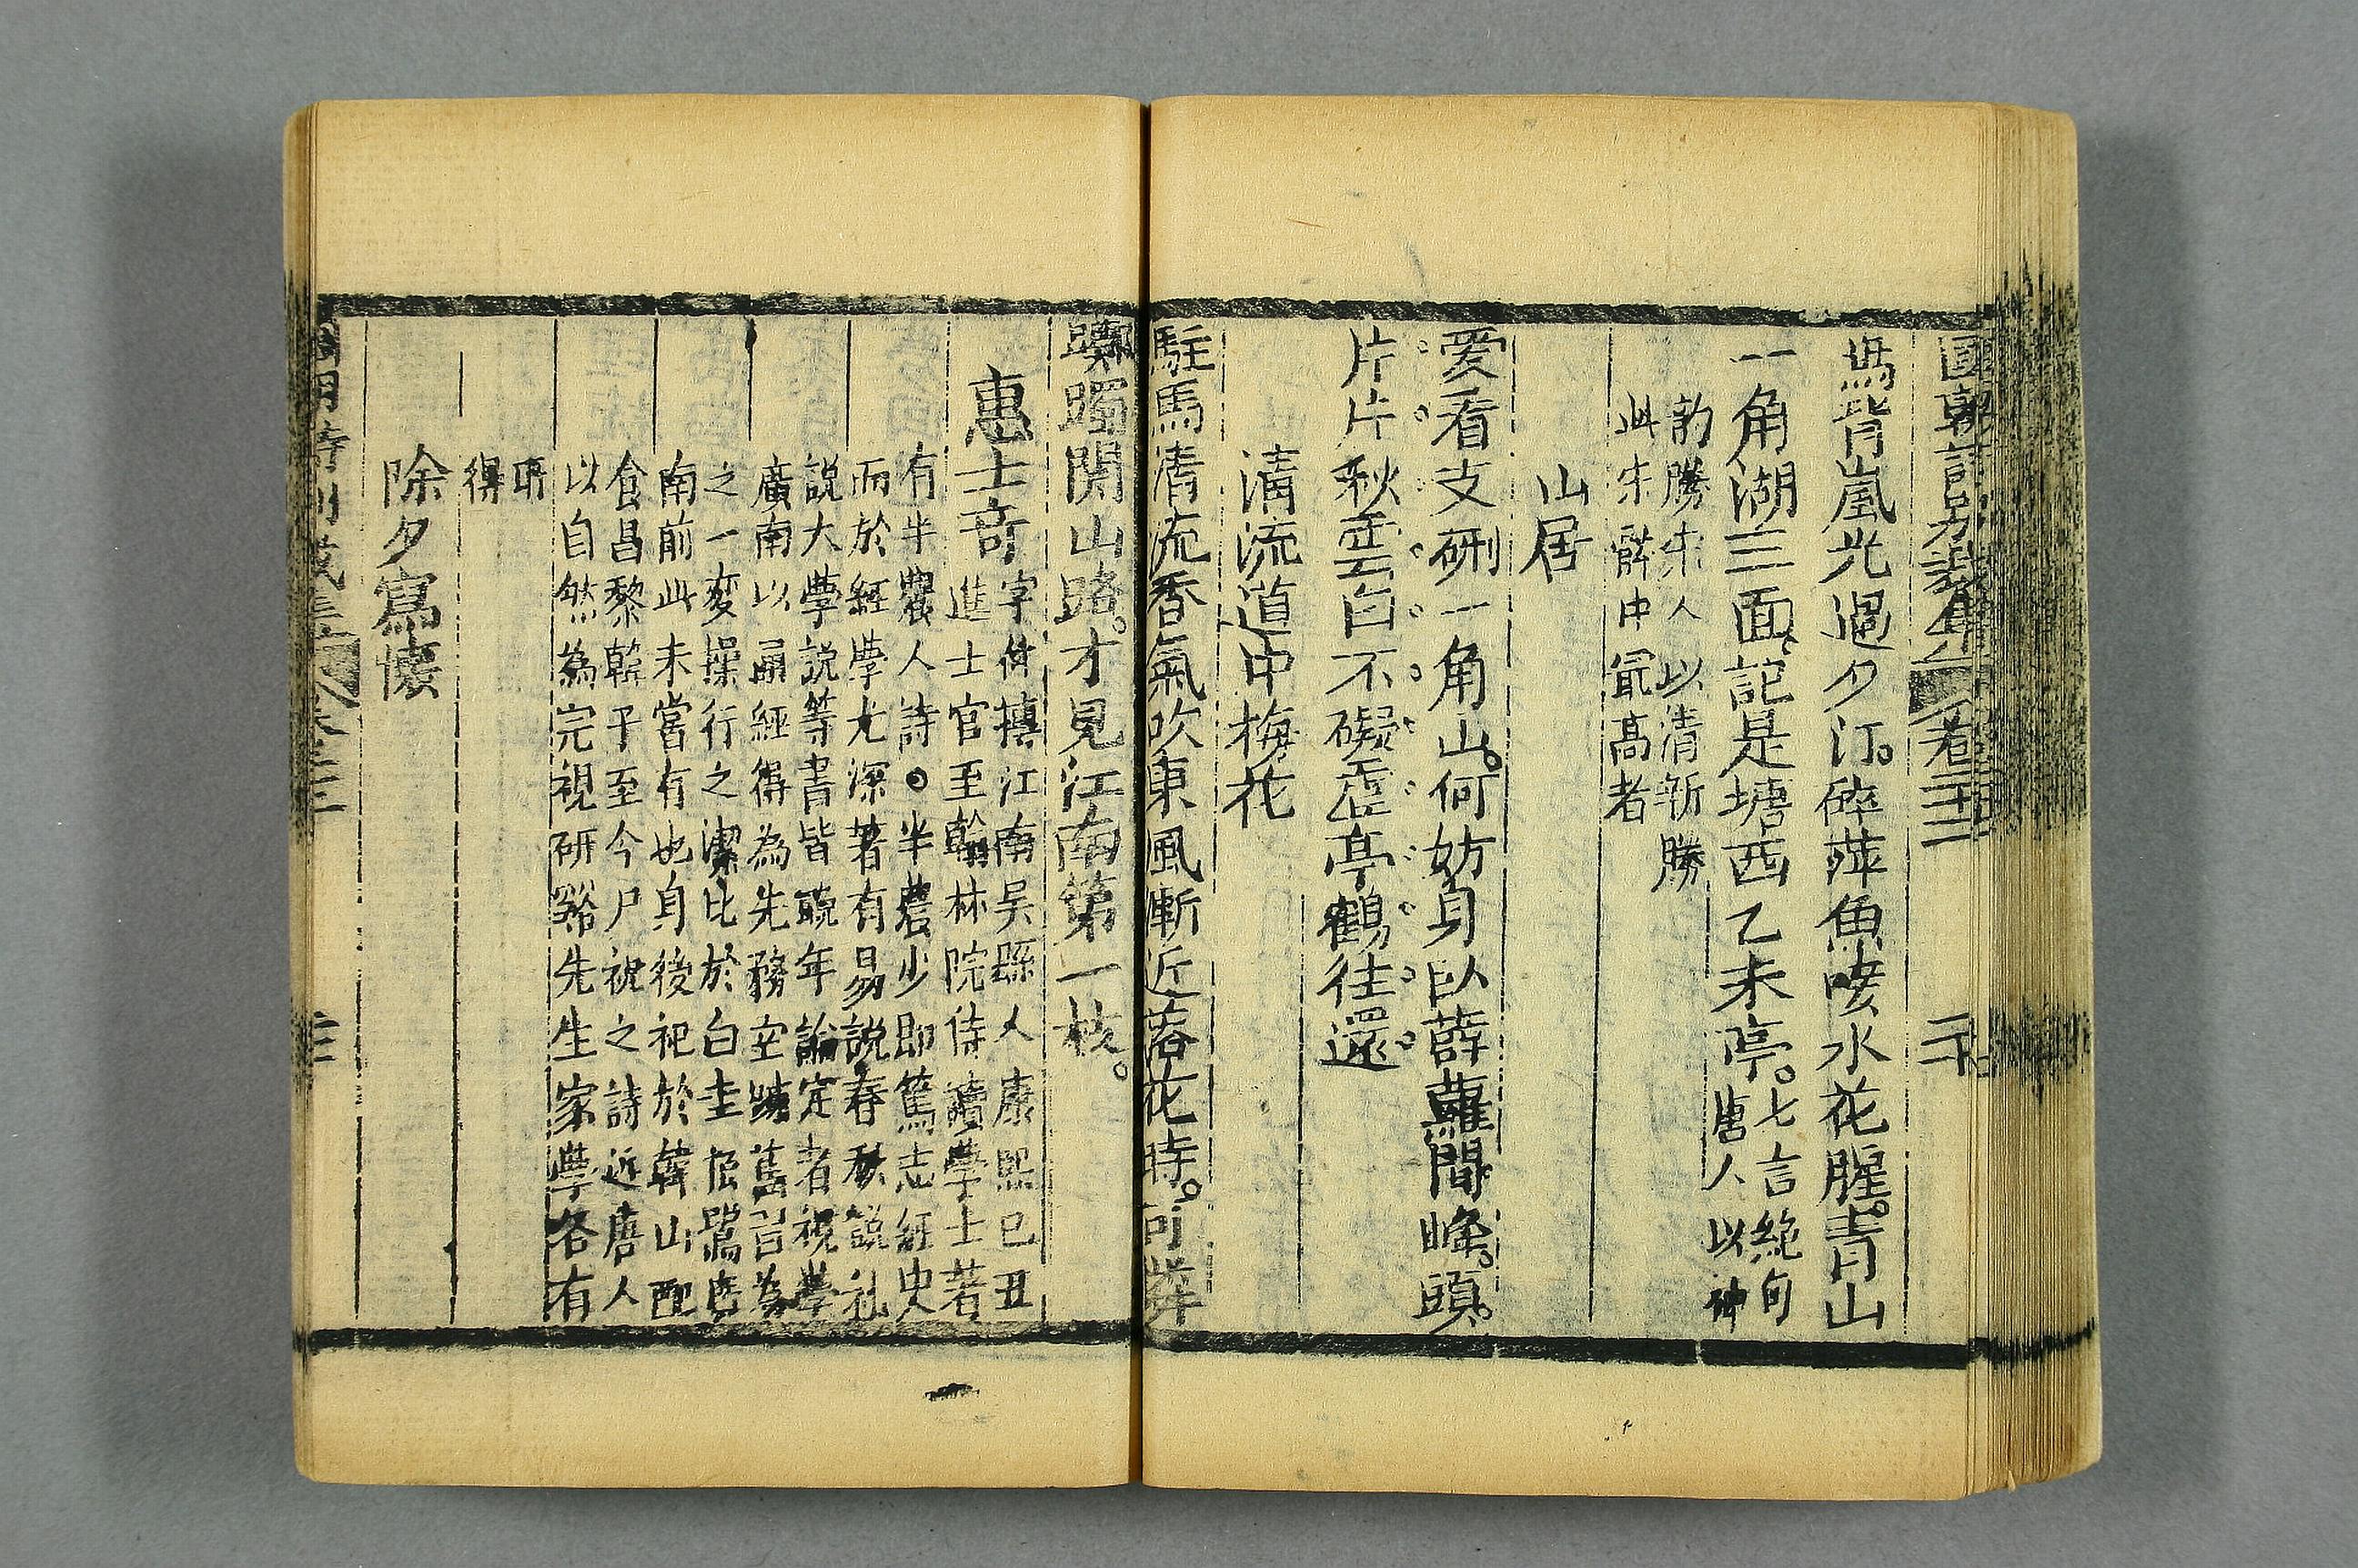 國朝詩別裁集 卷二十三 二十
馬背嵐光過夕汀碎萍魚唼水花腥青山
一角湖三面記是塘西乙未亭七言絶句
唐人以神
韵勝宋人以清新勝
此宋辭中最高者
山居
愛看支硎一角山何妨身臥薜蘿間峰頭
片片秋雲白不礙虛亭鶴往還
清流道中梅花
駐馬清流香氣吹東風漸近落花時可憐
躑躅開山路才見江南第一枝
惠士奇字仲孺江南吴縣人康熙己丑
進士官至翰林院侍讀學士著
有半農人詩半農少即篤志經史
而於經學尤深著有易説春秋説礼
説大學説等書皆晩年論定者視學
廣南以通經得為先務空踈舊習為
之一変操行之潔比於白圭振鷺唐
南前此未嘗有也身後祀於韓山配
食昌黎韓子至今尸祝之詩近唐人
以自然為完視研谿先生家學各有
所
得
除夕寫懐